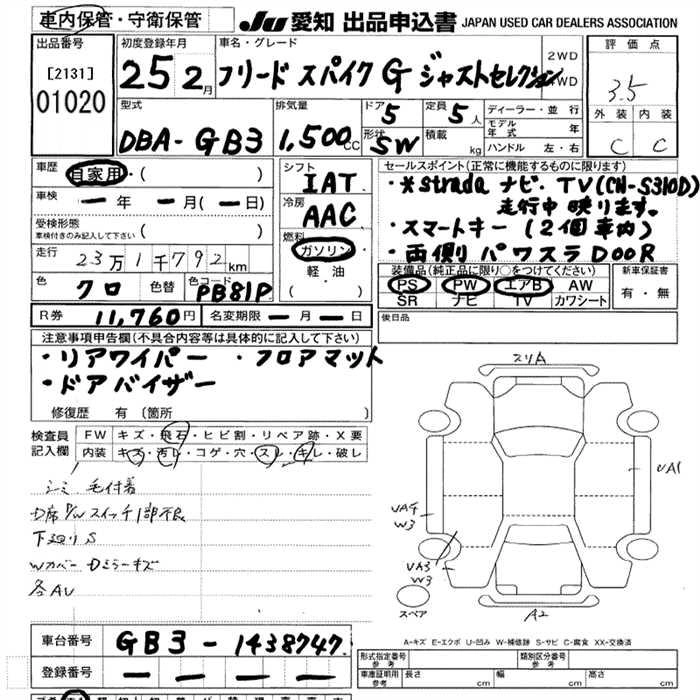 車内保管・守衛保管
JU 愛知 出品申込書 JAPAN USED CAR DEALERS ASSOCIATION
出品番号
[2131]
01020
初度登録年月
25 2月
車名・グレード
フリード スパイク G ジャストセレクション
2WD
4WD
評価点
3.5
外装 内装
C C
型式
DBA-GB3
排気量
1,500cc
ドア 5
形状 SW
定員 5人
積載 kg
ディーラー・並行
モデル年式 年
ハンドル 左・右
車歴
自家用・( )
車検
ー年 ー月(ー日)
受検形態
車検付きのみ記入して下さい ( )
走行
23万1千792km
色 クロ 色替 色コード PB81P
シフト
IAT
冷房
AAC
燃料
ガソリン
軽油
( )
セールスポイント(正常に機能するものに限ります)
・*strada ナビ・TV(CN-S310D)
走行中映ります。
・スマートキー(2個車内)
・両側パワスラDOOR
装備品(純正品に限り○をつけてください)
PS PW エアB AW
SR ナビ TV カワシート
新車保証書
有・無
R券 11,760円 名変期限 ー月ー日
後日品
注意事項申告欄(不具合内容等は具体的に記入して下さい)
・リアワイパー ・フロアマット
・ドアバイザー
修復歴 有(箇所
検査員記入欄
FW キズ・飛石・ヒビ割・リペア跡・X要
内装 キズ・汚れ・コゲ・穴・スレ・キレ・破レ
シミ 毛付着
D席P/Wスイッチ1部不良
下廻りS
Wカバー Dミラーキズ
各AU
スリA
UA1
UA4
W3
UA3
W3
スペア
A2
A-キズ E-エクボ U-凹み W-補修跡 S-サビ C-腐食 XX-交換済
車台番号 GB3-1438747.
登録番号 ー ー ー ー
形式指定番号
参考
類別区分番号
参考
車庫証明用
参考
長さ cm 幅 cm 高さ cm